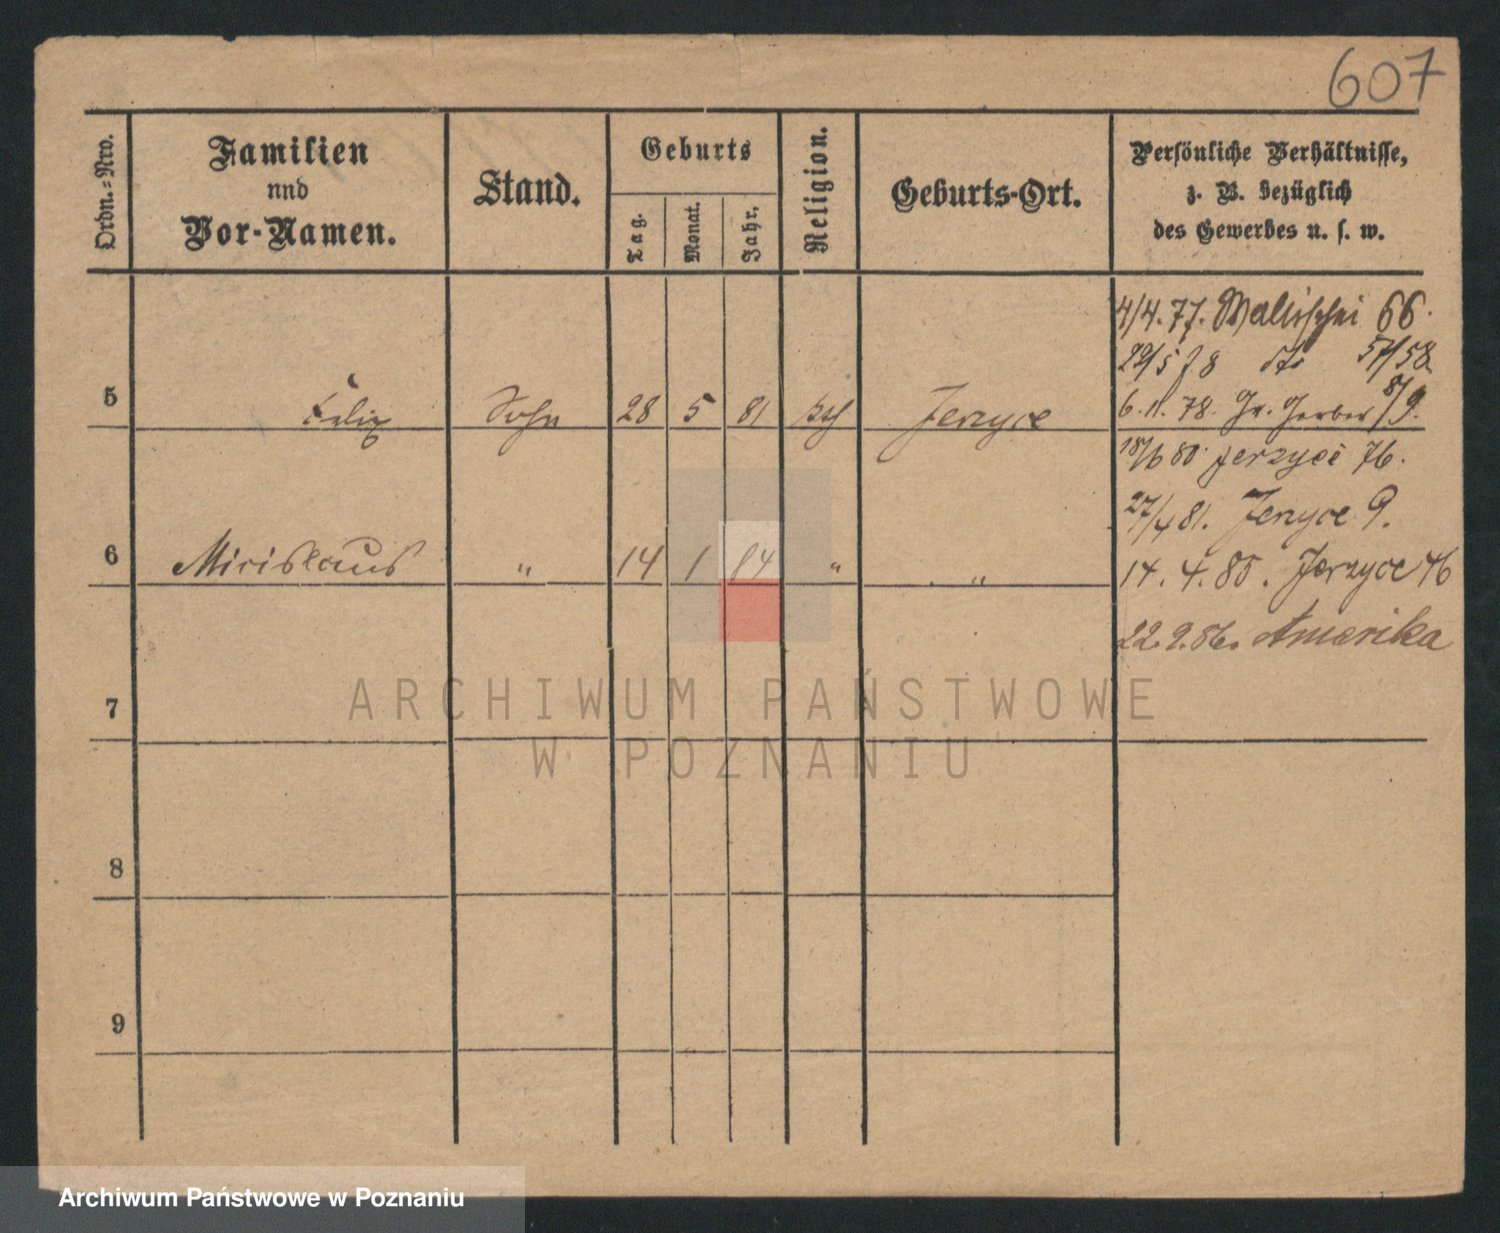 607
Ordn.=Nro.
Familien
nnd
Vor-Namen.
Stand.
Geburts
Tag.
Monat.
Jahr.
Religion.
Geburts-Ort.
Persönliche Verhältnisse,
z. B. bezüglich
des Gewerbes u. s. w.
4/4. 77. Wallischei 66.
29/5 78 dto 57/58
5 Felix Sohn 28 5 81 kth Jerzyce
6. 11. 78. Gr. Gerber 8/9.
18/6 80 Jerzyce 76.
27/4 81. Jerzyce 9.
6 Miecislaus " 14 1 84 " "
14. 4. 85. Jerzyce 46
22. 9. 86. Amerika
7
8
9
ARCHIWUM PAŃSTWOWE
W POZNANIU
Archiwum Państwowe w Poznaniu